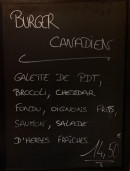 BURGER
CANADIEN
GALETTE DE PDT,
BROCOLI, CHEDDAR
FONDU, OIGNONS FRITS,
SAUMON, SALADE
D'HERBES FRAÎCHES.
14,50